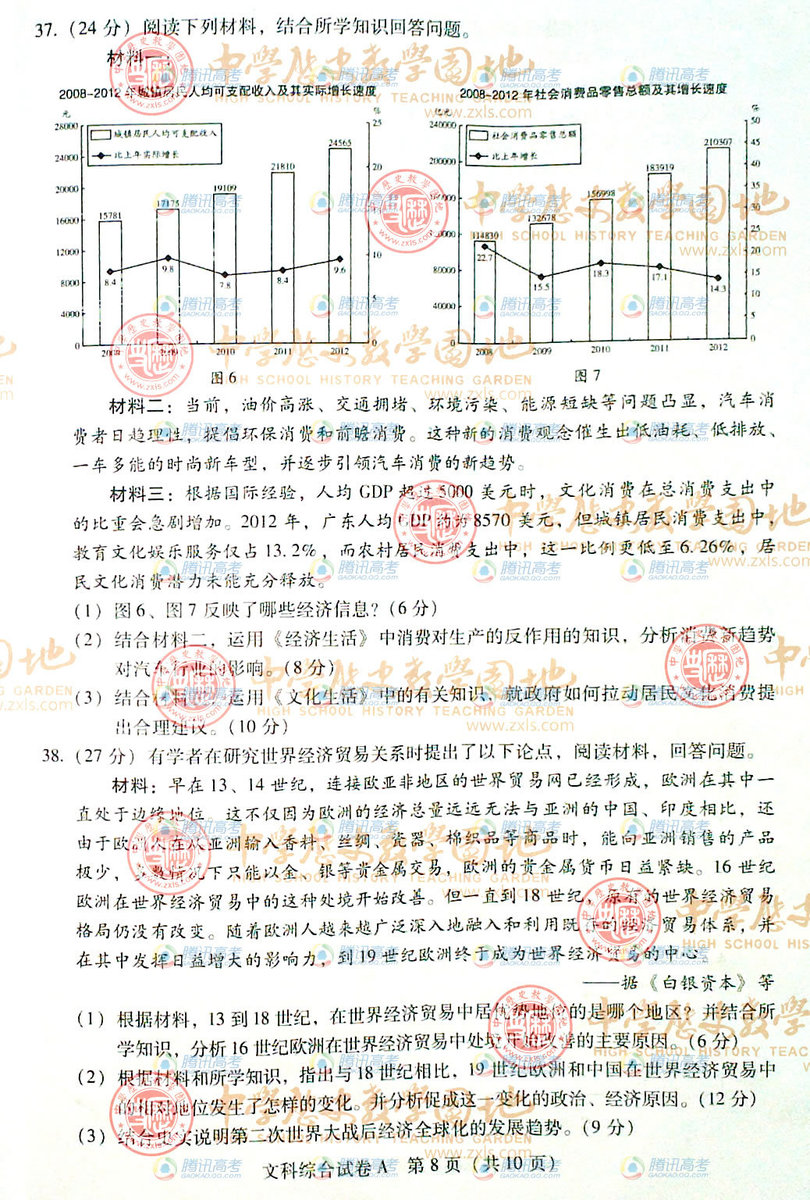 37.（24 分）阅读下列材料，结合所学知识回答问题。
材料一：
2008-2012 年城镇居民人均可支配收入及其实际增长速度
元
%
28000
24000
20000
16000
12000
8000
4000
0
25
20
15
10
5
0
城镇居民人均可支配收入
比上年实际增长
15781
17175
19109
21810
24565
8.4
9.8
7.8
8.4
9.6
2008
2009
2010
2011
2012
图 6
2008-2012 年社会消费品零售总额及其增长速度
亿元
%
240000
200000
160000
120000
80000
40000
0
50
45
40
35
30
25
20
15
10
5
0
社会消费品零售总额
比上年增长
114830
132678
156998
183919
210307
22.7
15.5
18.3
17.1
14.3
2008
2009
2010
2011
2012
图 7
材料二：当前，油价高涨、交通拥堵、环境污染、能源短缺等问题凸显，汽车消
费者日趋理性，提倡环保消费和前瞻消费。这种新的消费观念催生出低油耗、低排放、
一车多能的时尚新车型，并逐步引领汽车消费的新趋势。
材料三：根据国际经验，人均 GDP 超过 5000 美元时，文化消费在总消费支出中
的比重会急剧增加。2012 年，广东人均 GDP 约为 8570 美元，但城镇居民消费支出中，
教育文化娱乐服务仅占 13.2%，而农村居民消费支出中，这一比例更低至 6.26%，居
民文化消费潜力未能充分释放。
（1）图 6、图 7 反映了哪些经济信息？（6 分）
（2）结合材料二，运用《经济生活》中消费对生产的反作用的知识，分析消费新趋势
对汽车行业的影响。（8 分）
（3）结合材料三，运用《文化生活》中的有关知识，就政府如何拉动居民文化消费提
出合理建议。（10 分）
38.（27 分）有学者在研究世界经济贸易关系时提出了以下论点，阅读材料，回答问题。
材料：早在 13、14 世纪，连接欧亚非地区的世界贸易网已经形成，欧洲在其中一
直处于边缘地位。这不仅因为欧洲的经济总量远远无法与亚洲的中国、印度相比，还
由于欧洲人在从亚洲输入香料、丝绸、瓷器、棉织品等商品时，能向亚洲销售的产品
极少，多数情况下只能以金、银等贵金属交易，欧洲的贵金属货币日益紧缺。16 世纪
欧洲在世界经济贸易中的这种处境开始改善。但一直到 18 世纪，原有的世界经济贸易
格局仍没有改变。随着欧洲人越来越广泛深入地融入和利用既有的经济贸易体系，并
在其中发挥日益增大的影响力，到 19 世纪欧洲终于成为世界经济贸易的中心。
——据《白银资本》等
（1）根据材料，13 到 18 世纪，在世界经济贸易中居优势地位的是哪个地区？并结合所
学知识，分析 16 世纪欧洲在世界经济贸易中处境开始改善的主要原因。（6 分）
（2）根据材料和所学知识，指出与 18 世纪相比，19 世纪欧洲和中国在世界经济贸易中
的相对地位发生了怎样的变化。并分析促成这一变化的政治、经济原因。（12 分）
（3）结合史实说明第二次世界大战后经济全球化的发展趋势。（9 分）
文科综合试卷 A 第 8 页（共 10 页）
中学历史教学园地
HIGH SCHOOL HISTORY TEACHING GARDEN
www.zxls.com
腾讯高考
GAOKAO.QQ.COM